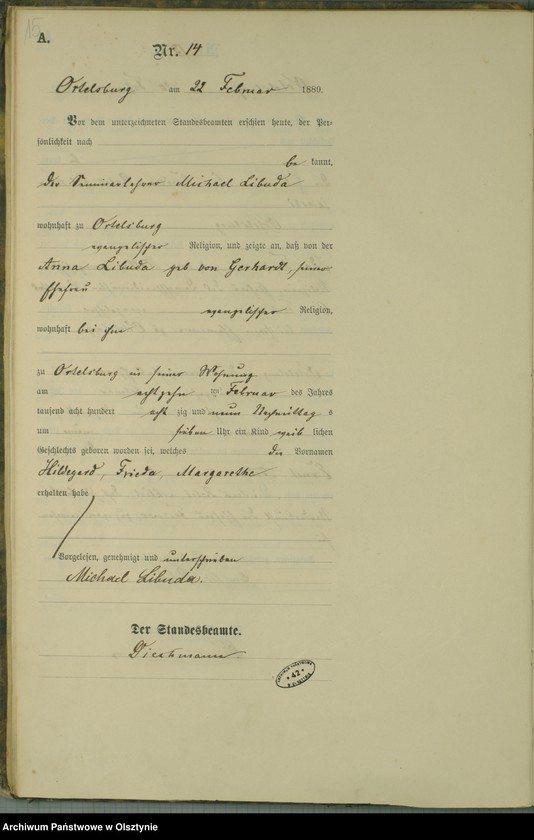 15
A.
Nr. 14
Ortelsburg am 22 Februar 1889.
Vor dem unterzeichneten Standesbeamten erschien heute, der Per-
sönlichkeit nach
be kannt,
der Seminarlehrer Michael Libuda
wohnhaft zu Ortelsburg
evangelischer Religion, und zeigte an, daß von der
Anna Libuda geb von Gerhardt, seiner
Ehefrau
evangelischer Religion,
wohnhaft bei ihm
zu Ortelsburg in seiner Wohnung
am achtzehn ten Februar des Jahres
tausend acht hundert acht zig und neun Nachmittag s
um sieben Uhr ein Kind weib lichen
Geschlechts geboren worden sei, welches die Vornamen
Hildegard, Frieda, Margarethe
erhalten habe
Vorgelesen, genehmigt und unterschrieben
Michael Libuda.
Der Standesbeamte.
Diechmann
ARCHIWUM PAŃSTWOWE
* 42 *
W OLSZTYNIE
Archiwum Państwowe w Olsztynie